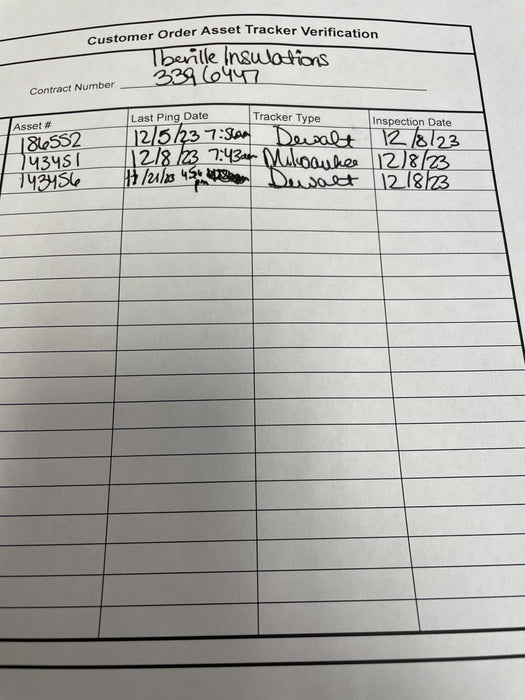 Customer Order Asset Tracker Verification
Iberville Insulations
Contract Number 3396447
Asset # Last Ping Date Tracker Type Inspection Date
186552 12/5/23 Dewalt 12/8/23
143451 12/8/23 7:43am Milwaukee 12/8/23
143456 11/21/23 pm Dewalt 12/8/23